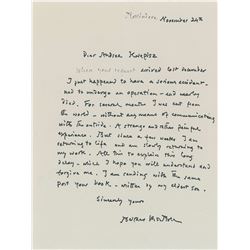 November 24th
Dear Andrew
When your request arrived last December
I just happened to have a serious accident -
had to undergo an operation - and nearly
died. For several months I was cut from
the world - without any means of communicating
with the outside. A strange and rather painful
experience. But since a few weeks I am
returning to life and am slowly returning to
my work. All this to explain this long
delay - which I hope you will understand and
forgive me. I am sending with the same
post your book - written by my eldest son.
Sincerely yours